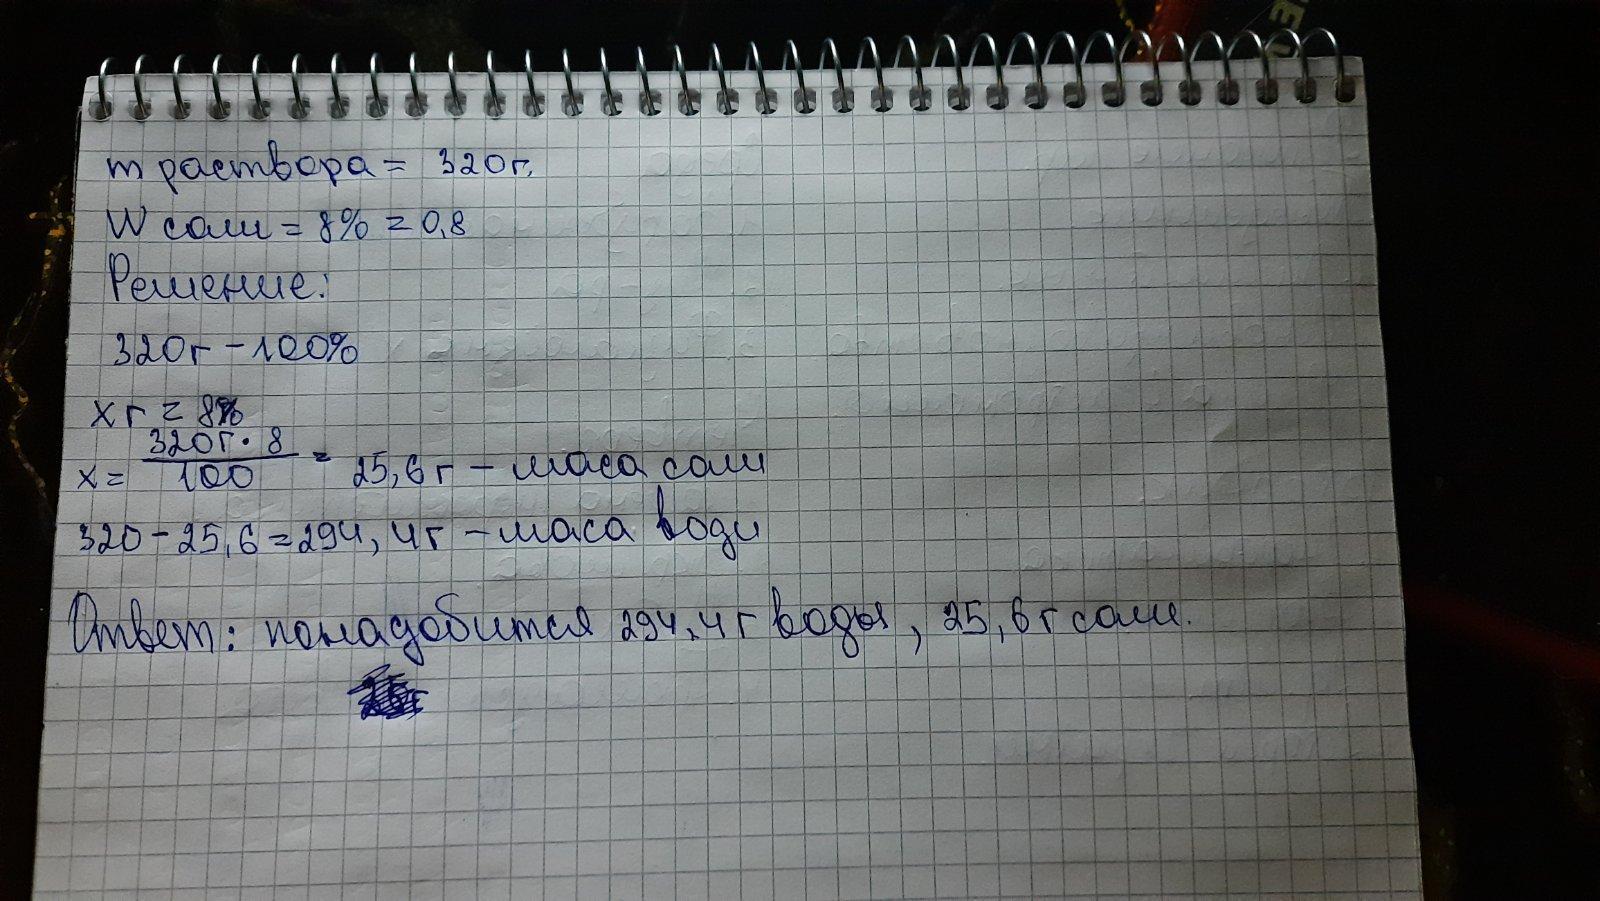 m раствора = 320г.
W соли = 8% = 0,8
Решение:
320г - 100%
x г = 8%
x = 320г · 8 / 100 = 25,6 г - маса соли
320 - 25,6 = 294,4г - маса води
Ответ: понадобится 294,4 г воды, 25,6 г соли.